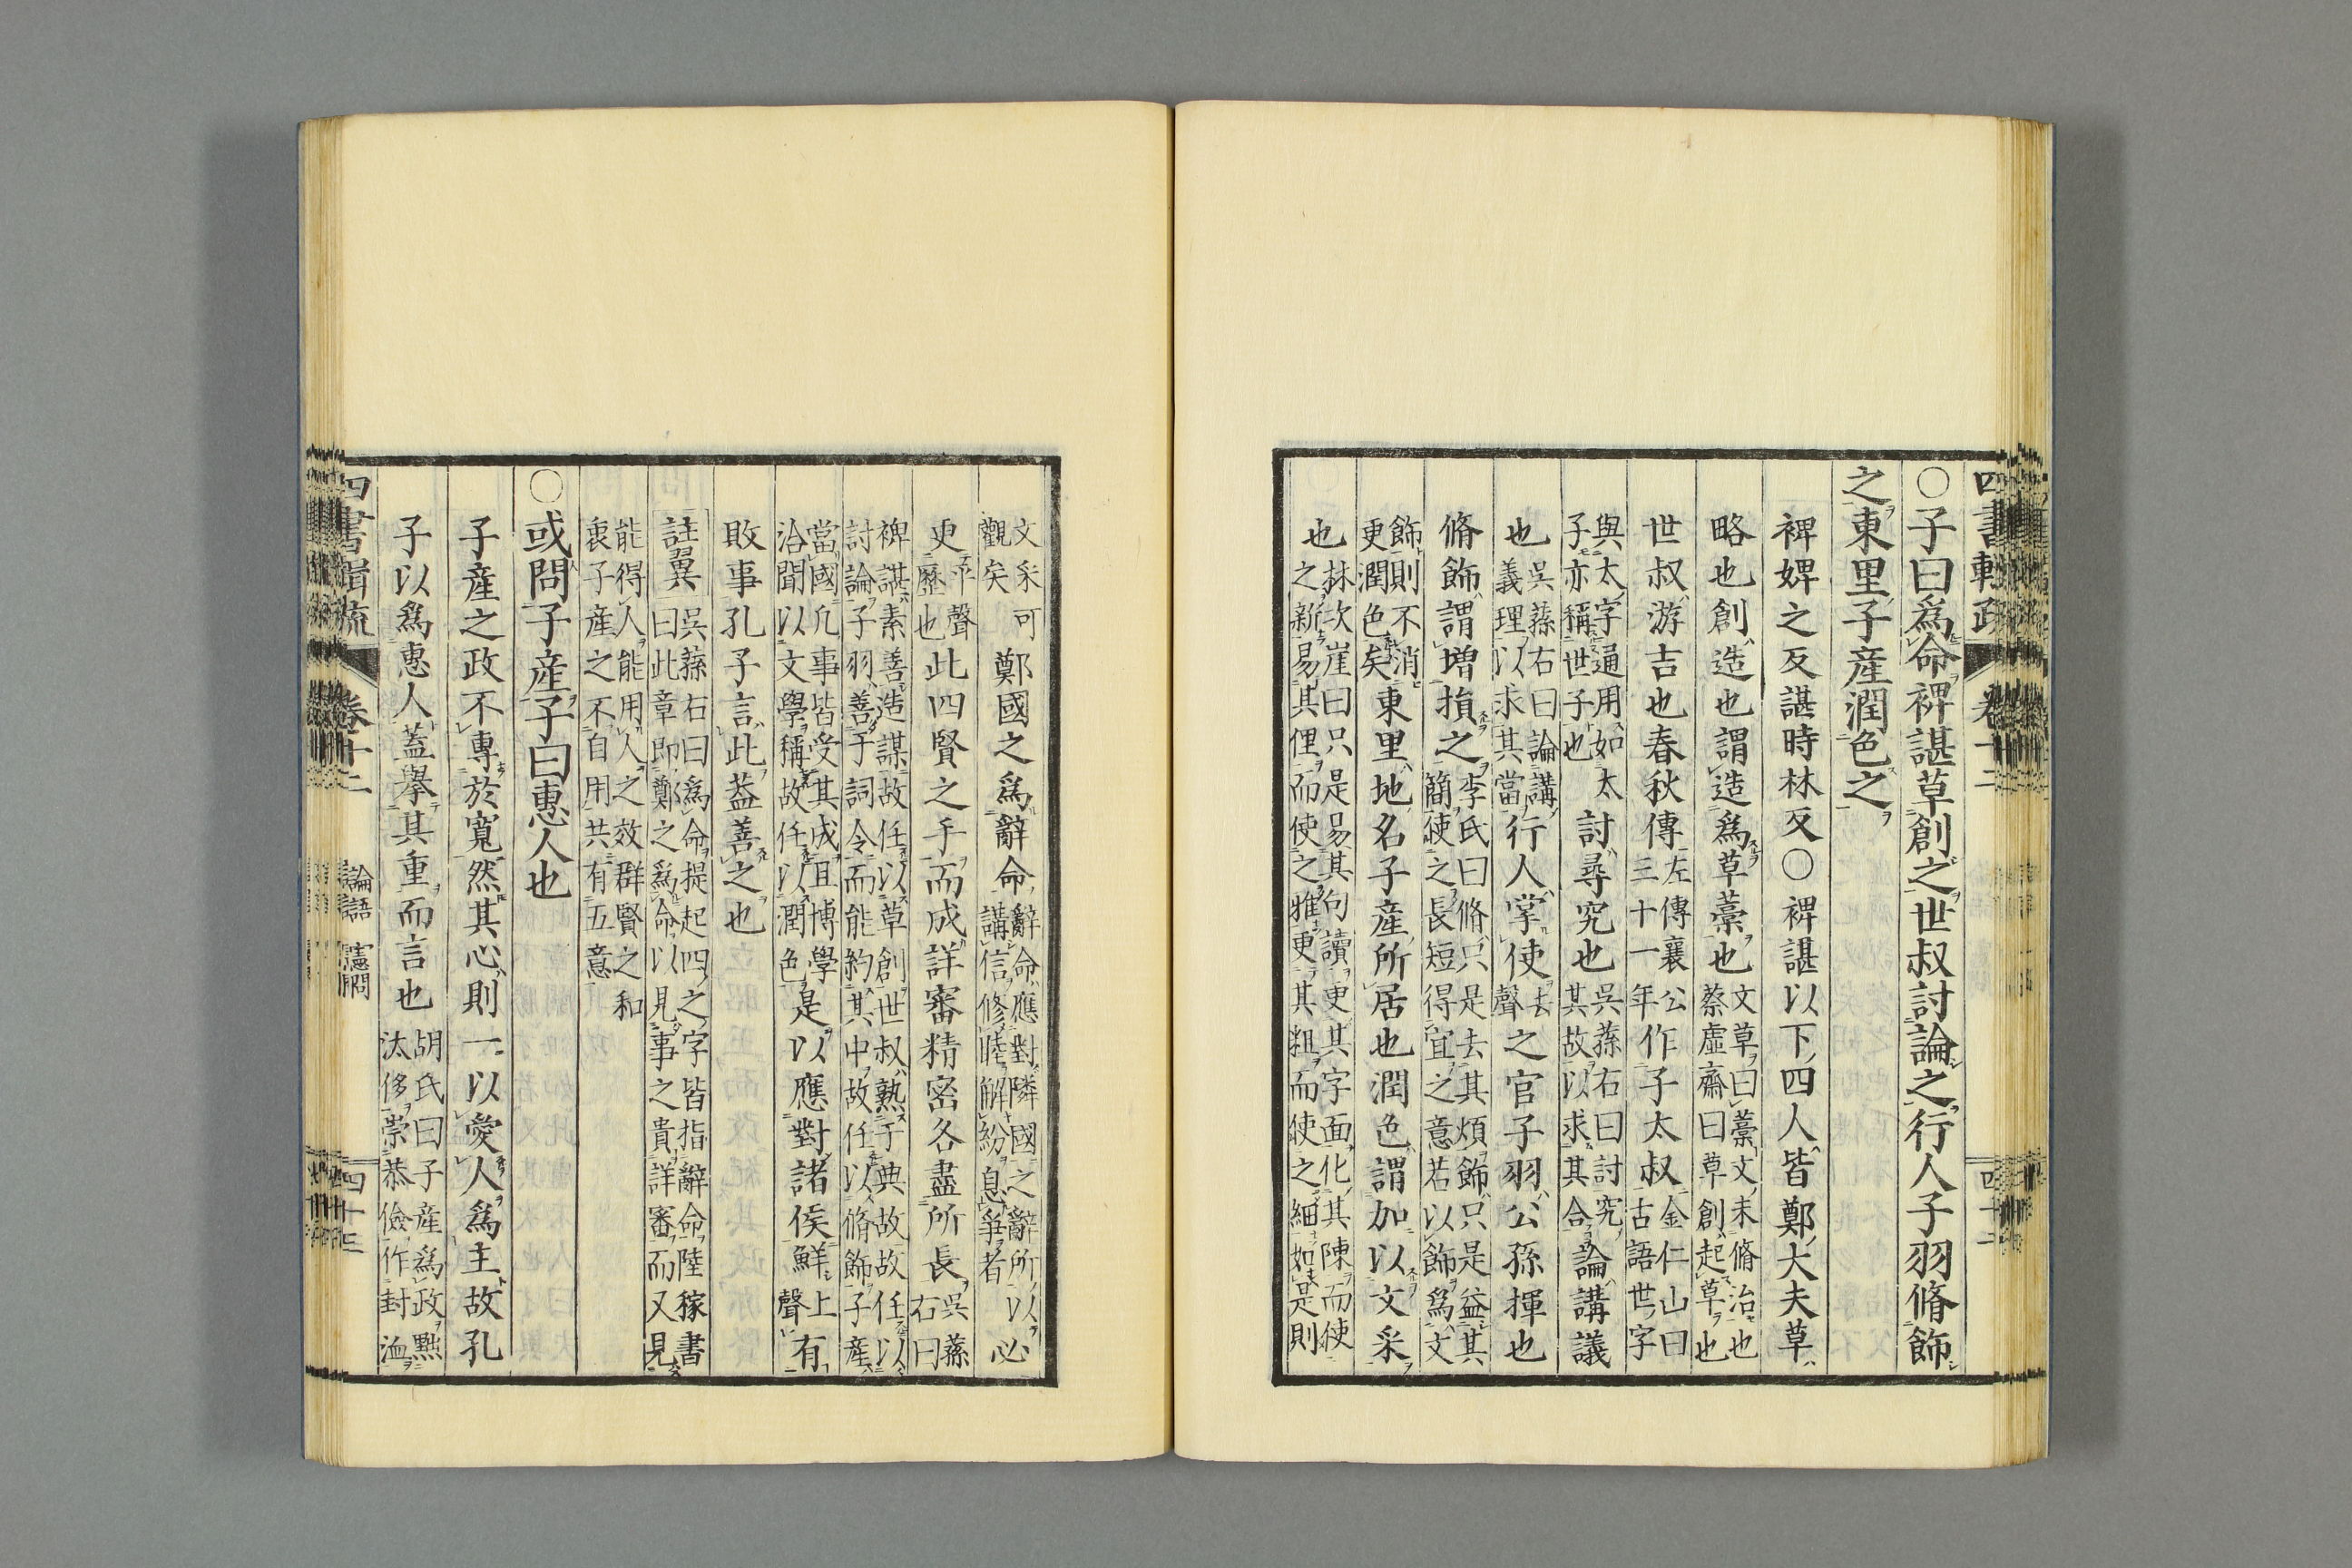 ○子曰爲命裨諶草創之世叔討論之行人子羽脩飾
之東里子產潤色之
裨婢之反諶時林反○裨諶以下四人皆鄭大夫草
略也創造也謂造爲草藁也文草曰藁文未脩治也蔡虛齋曰草創起草也
世叔游吉也春秋傳左傳襄公三十一年作子太叔金仁山曰古語世字
與太字通用如太子亦稱世子也討尋究也吳蓀右曰討究其故以求其合論講議
也吳蓀右曰論講義理以求其當行人掌使去聲之官子羽公孫揮也
脩飾謂增損之李氏曰脩只是去其煩飾只是益其簡使之長短得宜之意若以飾爲文
飾則不消更潤色矣東里地名子產所居也潤色謂加以文采
也林次崖曰只是易其句讀更其字面化其陳而使之新易其俚而使之雅更其粗而使之細如是則
四書輯疏
卷十二
四十二
文采可觀矣鄭國之爲辭命辭命應對隣國之辭所以必講信修睦解紛息爭者
更平聲歷也此四賢之手而成詳審精密各盡所長吳蓀右曰
裨諶素善造謀故任以草創世叔熟于典故故任以討論子羽善于詞令而能約其中故任以脩飾子產
當國凡事皆受其成且博學洽聞以文學稱故任以潤色是以應對諸侯鮮上聲有
敗事孔子言此蓋善之也
註翼吳蓀右曰爲命提起四之字皆指辭命陸稼書曰此章卽鄭之爲命以見事之貴詳審而又見
能得人能用人之效群賢之和衷子產之不自用共有五意
○或問子產子曰惠人也
子產之政不專於寬然其心則一以愛人爲主故孔
子以爲惠人蓋擧其重而言也胡氏曰子產爲政黜汰侈崇恭儉作封洫
四書輯疏
卷十二
論語
憲問
四十三